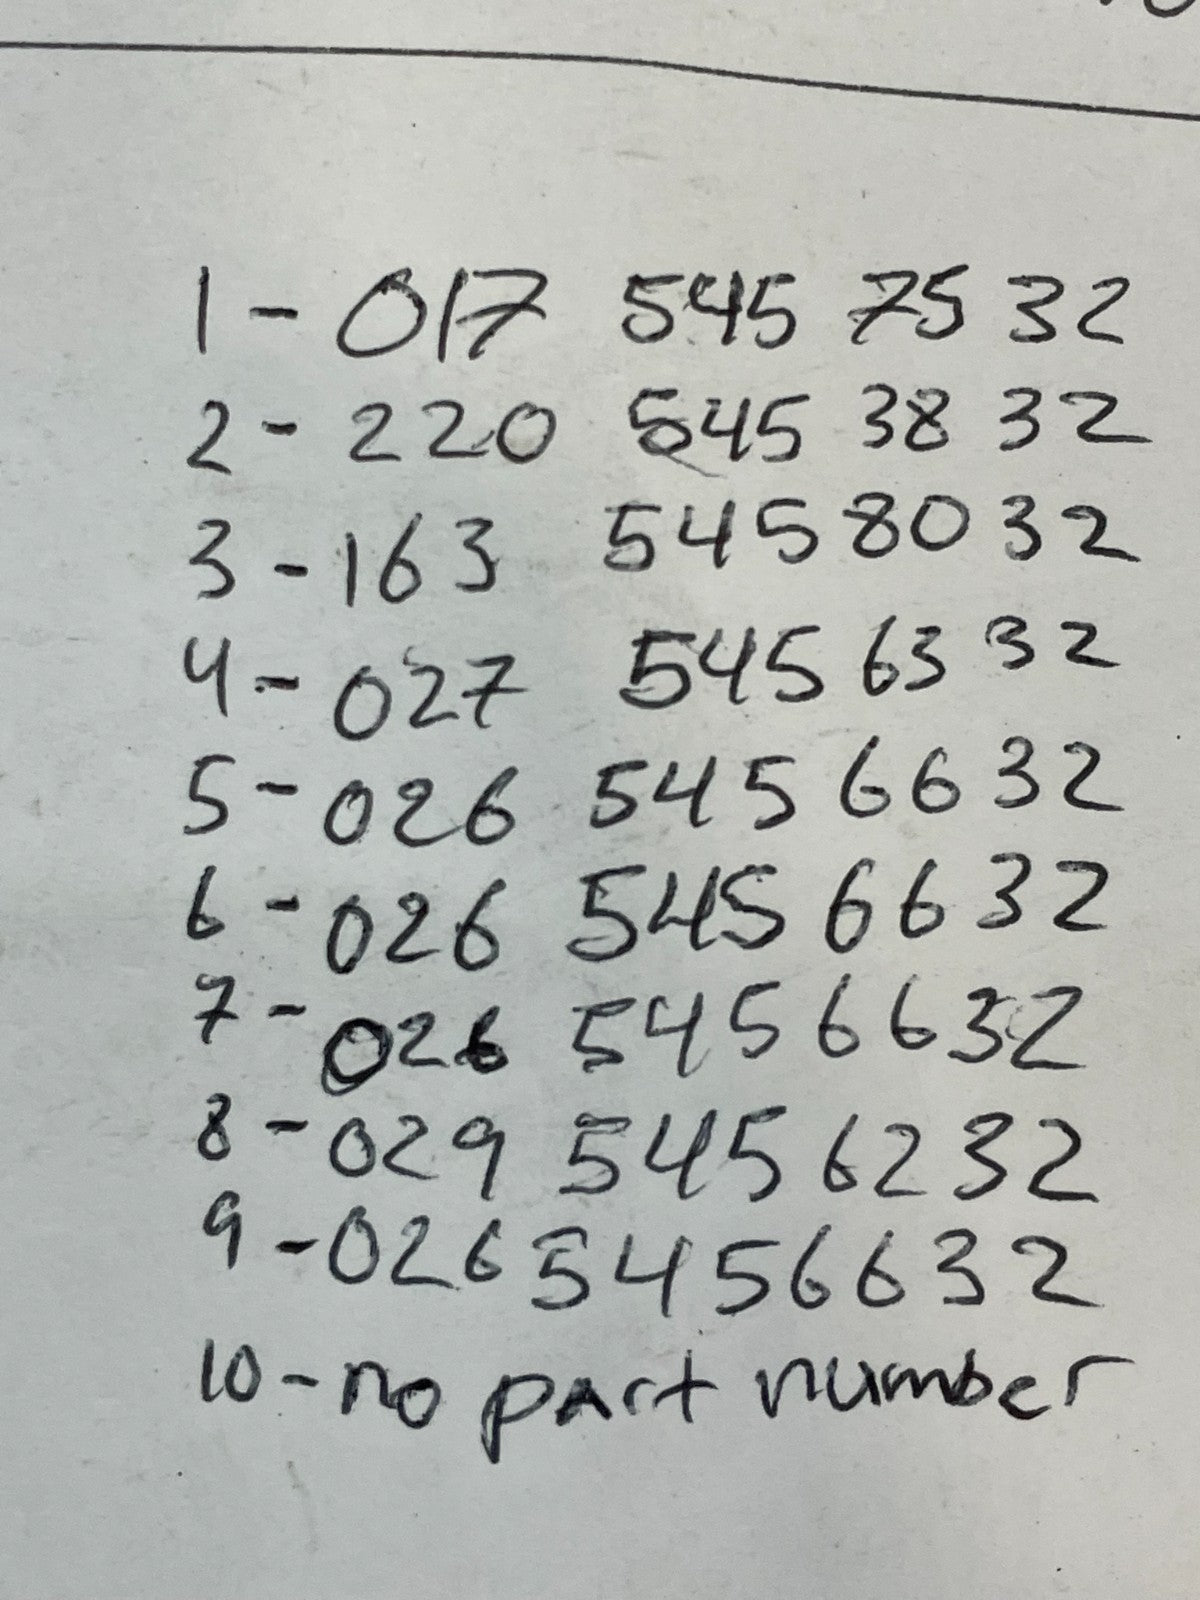 1 - 017 545 75 32
2 - 220 545 38 32
3 - 163 545 80 32
4 - 027 545 63 32
5 - 026 545 66 32
6 - 026 545 66 32
7 - 026 545 66 32
8 - 029 545 62 32
9 - 026 545 66 32
10 - no part number